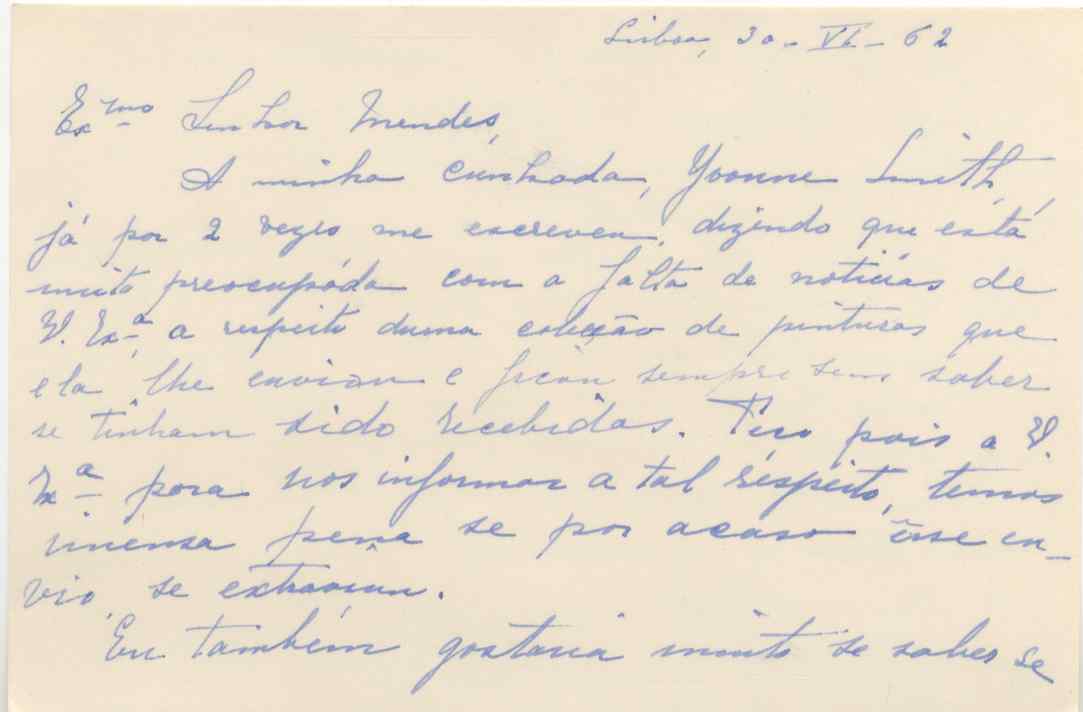 Lisboa, 30-VI-62
Exmo Senhor Mendes,
A minha cunhada, Yvonne Smith,
já por 2 vezes me escreveu, dizendo que está
muito preocupada com a falta de notícias de
V. Exª a respeito duma coleção de pinturas que
ela lhe enviou e ficou sempre sem saber
se tinham sido recebidas. Peço pois a V.
Exª para nos informar a tal respeito, temos
imensa pena se por acaso êsse en-
vio se extraviou.
Eu também gostaria muito de saber se